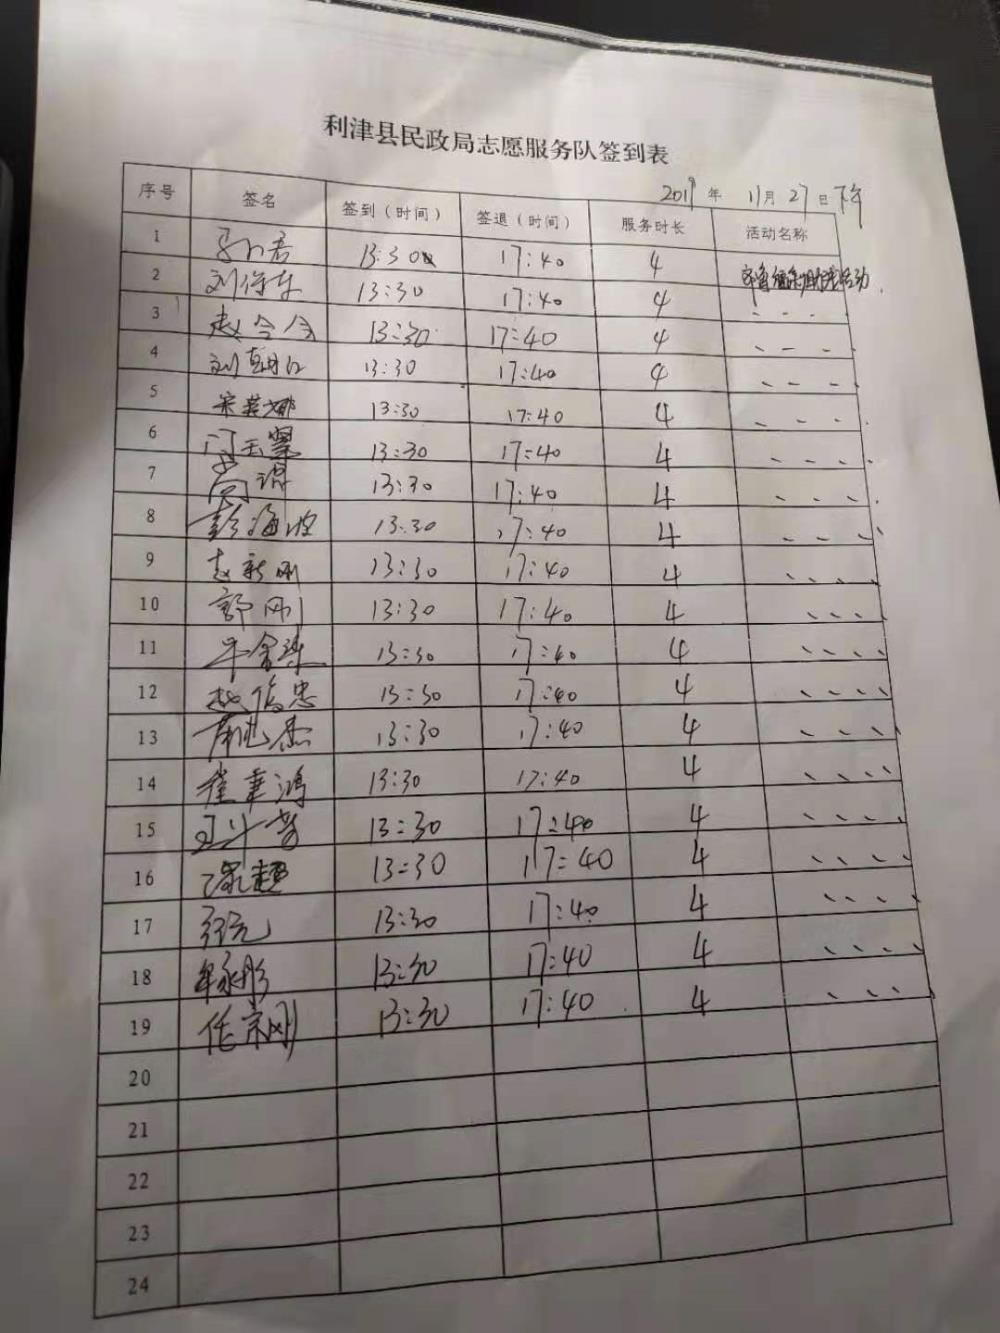 利津县民政局志愿服务队签到表
2019 年 11月 27日 下午
序号 签名 签到(时间) 签退(时间) 服务时长 活动名称
1 13:30 17:40 4 活动
2 13:30 17:40 4 、 、 、
3 赵令令 13:30 17:40 4 、 、 、
4 13:30 17:40 4 、 、 、
5 13:30 17:40 4 、 、 、
6 13:30 17:40 4 、 、 、
7 13:30 17:40 4 、 、 、
8 彭海波 13:30 17:40 4 、 、 、
9 赵新刚 13:30 17:40 4 、、、、
10 13:30 17:40 4 、、、
11 13:30 17:40 4 、、、、
12 赵信忠 13:30 17:40 4 、、、、
13 13:30 17:40 4 、、、、
14 崔华鸿 13:30 17:40 4 、、、、
15 13:30 17:40 4 、、、、
16 13:30 17:40 4 、、、、
17 13:30 17:40 4 、、、、
18 13:30 17:40 4 、、、、
19 任宗刚 13:30 17:40 4 、、、、
20
21
22
23
24